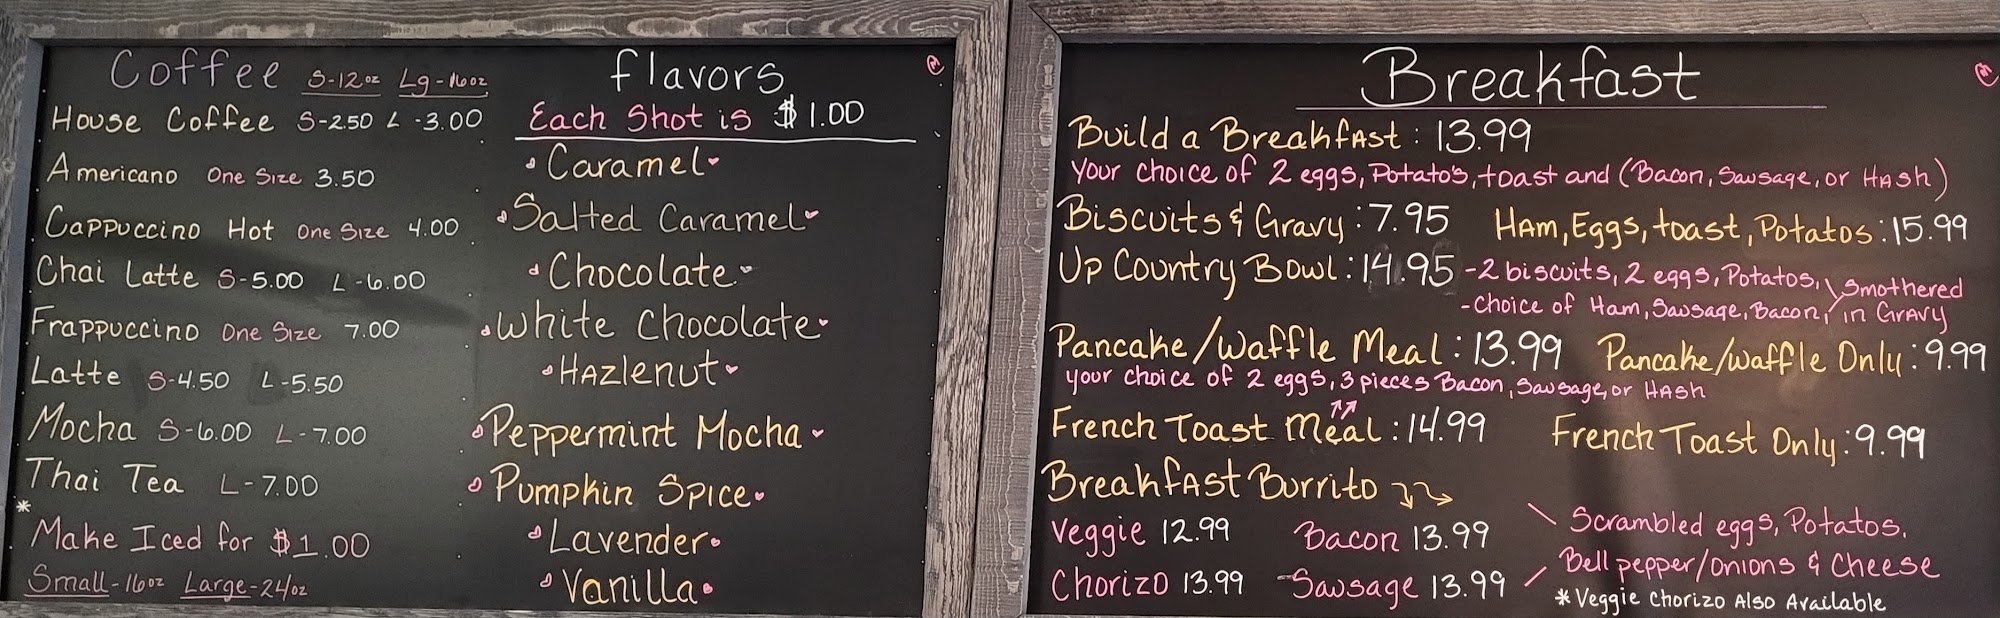 Coffee S-12oz Lg-16oz
House Coffee S-2.50 L-3.00
Americano One Size 3.50
Cappuccino Hot One Size 4.00
Chai Latte S-5.00 L-6.00
Frappuccino One Size 7.00
Latte S-4.50 L-5.50
Mocha S-6.00 L-7.00
Thai Tea L-7.00
*
Make Iced for $1.00
Small-16oz Large-24oz
flavors
Each Shot is $1.00
Caramel
Salted Caramel
Chocolate
White Chocolate
Hazlenut
Peppermint Mocha
Pumpkin Spice
Lavender
Vanilla
Breakfast
Build a Breakfast: 13.99
Your choice of 2 eggs, Potato's, toast and (Bacon, Sausage, or Hash)
Biscuits & Gravy: 7.95 Ham, Eggs, toast, Potatos: 15.99
Up Country Bowl: 14.95 -2 biscuits, 2 eggs, Potatos, Smothered
-Choice of Ham, Sausage, Bacon, in Gravy
Pancake/Waffle Meal: 13.99 Pancake/Waffle Only: 9.99
your choice of 2 eggs, 3 pieces Bacon, Sausage, or Hash
French Toast Meal: 14.99 French Toast Only: 9.99
Breakfast Burrito
Veggie 12.99 Bacon 13.99 Scrambled eggs, Potatos,
Chorizo 13.99 Sausage 13.99 Bell pepper/onions & Cheese
*Veggie Chorizo Also Available